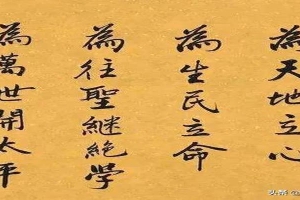 為天地立心
為生民立命
為往聖繼絕學
為萬世開太平
头条